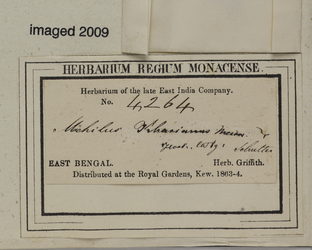 imaged 2009
HERBARIUM REGIUM MONACENSE.
Herbarium of the late East India Company.
No. 4264
Machilus Khasianus Meisn.
EAST BENGAL. Herb. Griffith.
Distributed at the Royal Gardens, Kew. 1863-4.